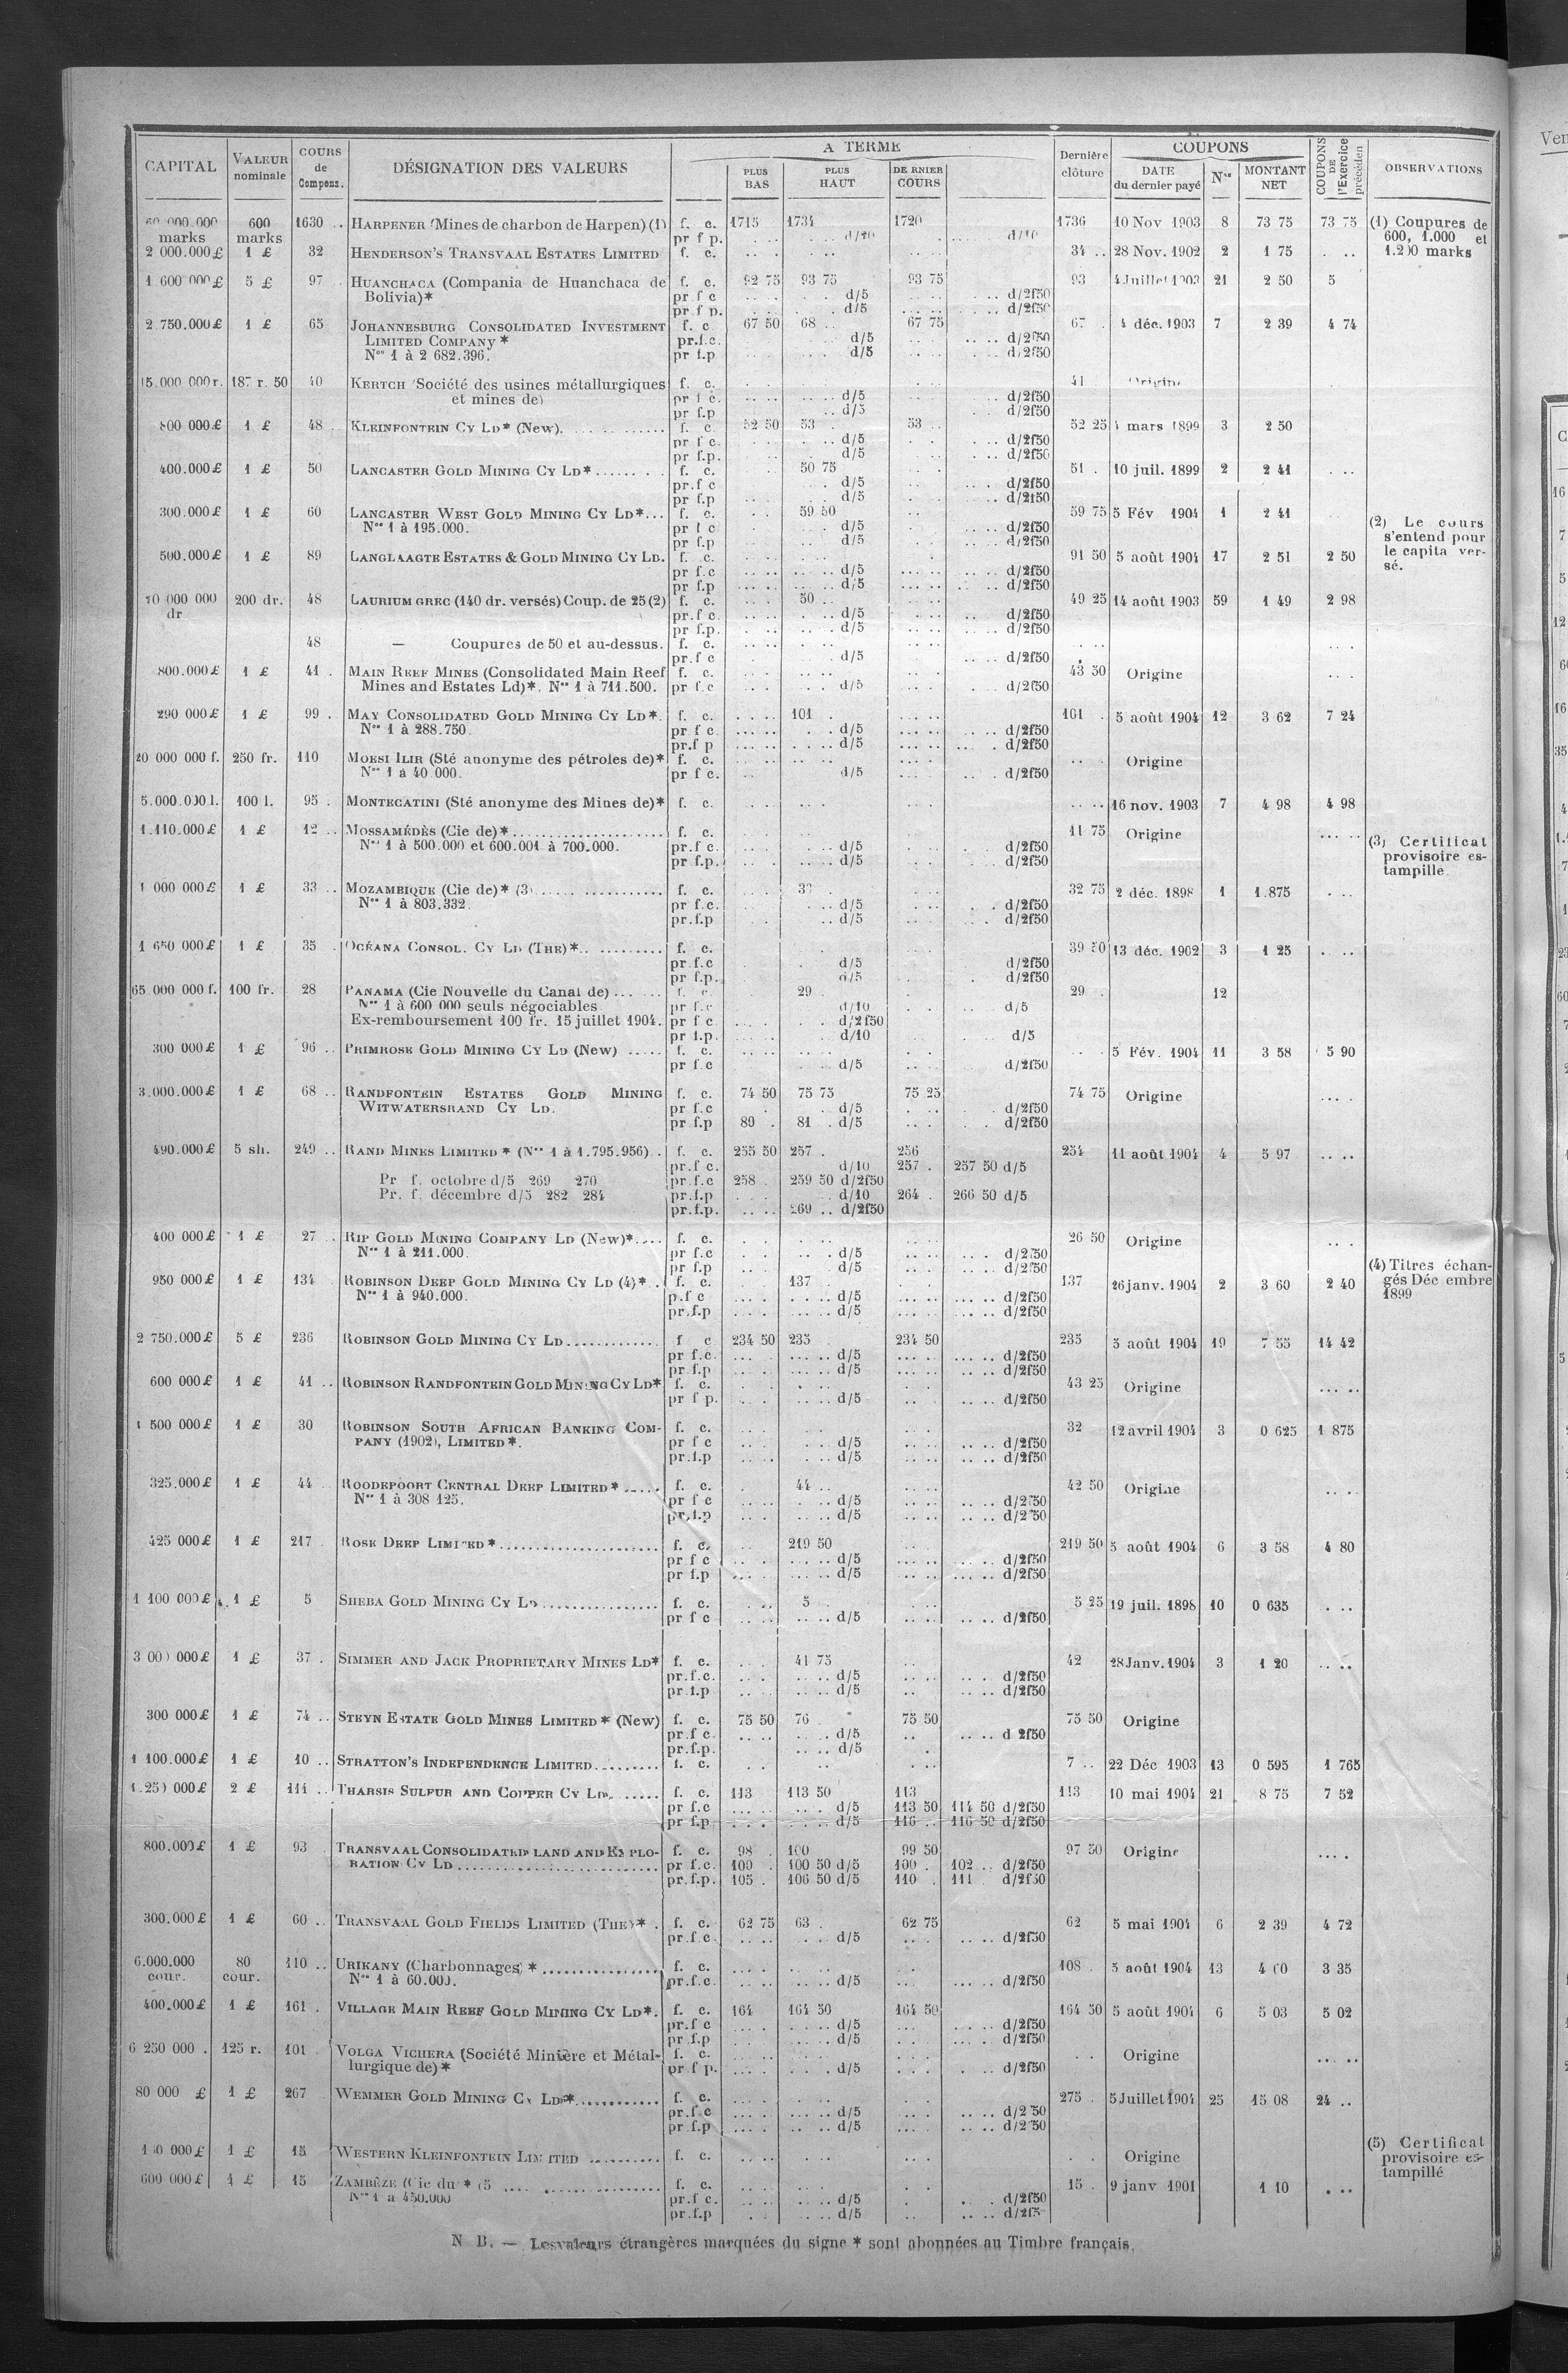 CAPITAL | VALEUR nominale | COURS de Compens. | DÉSIGNATION DES VALEURS | A TERME | PLUS BAS | PLUS HAUT | DERNIER COURS | Dernière clôture | COUPONS | DATE du dernier payé | Nos | MONTANT NET | COUPONS DE l'Exercice précéden | OBSERVATIONS
60 000.000 marks | 600 marks | 1630 .. | HARPENER (Mines de charbon de Harpen) (1) | f. c. | 1715 | 1734 | 1720 | 1736 | 10 Nov 1903 | 8 | 73 75 | 73 75 | (1) Coupures de
pr f p. | d/20 | d/10 | 600, 1.000 et
2 000.000 £ | 1 £ | 32 | HENDERSON'S TRANSVAAL ESTATES LIMITED | f. c. | 34 .. | 28 Nov. 1902 | 2 | 1 75 | 1.200 marks
1 600 000 £ | 5 £ | 97 | HUANCHACA (Compania de Huanchaca de | f. c. | 92 75 | 93 75 | 93 75 | 93 | 4 Juillet 1903 | 21 | 2 50 | 5
Bolivia)* | pr f c | d/5 | d/2f50
pr f p. | d/5 | d/2f50
2.750.000 £ | 1 £ | 65 | JOHANNESBURG CONSOLIDATED INVESTMENT | f. c | 67 50 | 68 .. | 67 75 | 67 . | 4 déc. 1903 | 7 | 2 39 | 4 74
LIMITED COMPANY * | pr.f.c. | d/5 | d/2f50
Nos 1 à 2 682.396. | pr f.p | d/5 | d/2f50
15.000 000 r. | 187 r. 50 | 40 | KERTCH (Société des usines métallurgiques | f. c. | 41 | Origine
et mines de) | pr f c. | d/5 | d/2f50
pr f.p | d/5 | d/2f50
800 000 £ | 1 £ | 48 | KLEINFONTEIN CY LD* (New). | f. c | 52 50 | 53 . | 53 .. | 52 25 | 4 mars 1899 | 3 | 2 50
pr f c. | d/5 | d/2f50
pr f.p. | d/5 | d/2f50
400.000 £ | 1 £ | 50 | LANCASTER GOLD MINING CY LD* | f. c. | 50 75 | 51 . | 10 juil. 1899 | 2 | 2 41
pr.f c | d/5 | d/2f50
pr f.p | d/5 | d/2f50
300.000 £ | 1 £ | 60 | LANCASTER WEST GOLD MINING CY LD*... | f. c. | 59 50 | 59 75 | 5 Fév 1904 | 1 | 2 41
Nos 1 à 195.000. | pr f c | d/5 | d/2f50 | (2) Le cours
pr f.p | d/5 | d/2f50 | s'entend pour
500.000 £ | 1 £ | 89 | LANGLAAGTE ESTATES & GOLD MINING CY LD. | f. c. | 91 50 | 5 août 1904 | 17 | 2 51 | 2 50 | le capita ver-
pr f.c | d/5 | d/2f50 | sé.
pr f.p | d/5 | d/2f50
10 000 000 dr | 200 dr. | 48 | LAURIUM GREC (140 dr. versés) Coup. de 25 (2) | f. c. | 50 .. | 49 25 | 14 août 1903 | 59 | 1 49 | 2 98
pr.f c. | d/5 | d/2f50
pr f.p. | d/5 | d/2f50
48 | — Coupures de 50 et au-dessus. | f. c.
pr.f c | d/5 | d/2f50
800.000 £ | 1 £ | 41 . | MAIN REEF MINES (Consolidated Main Reef | f. c. | 43 50 | Origine
Mines and Estates Ld)*. Nos 1 à 711.500. | pr f.c | d/5 | d/2f50
290 000 £ | 1 £ | 99 . | MAY CONSOLIDATED GOLD MINING CY LD*. | f. c. | 101 . | 101 . | 5 août 1904 | 12 | 3 62 | 7 24
Nos 1 à 288.750. | pr f c | d/5 | d/2f50
pr.f p | d/5 | d/2f50
20 000 000 f. | 250 fr. | 110 | MOKSI ILIR (Sté anonyme des pétroles de)* | f. c. | Origine
Nos 1 à 40 000. | pr f c. | d/5 | d/2f50
5.000.000 l. | 100 l. | 95 . | MONTECATINI (Sté anonyme des Mines de)* | f. c. | 16 nov. 1903 | 7 | 4 98 | 4 98
1.110.000 £ | 1 £ | 12 .. | MOSSAMÉDÈS (Cie de)* | f. c. | 11 75 | Origine
Nos 1 à 500.000 et 600.001 à 700.000. | pr.f c. | d/5 | d/2f50 | (3) Certificat
pr f.p. | d/5 | d/2f50 | provisoire es-
tampille.
1 000 000 £ | 1 £ | 33 .. | MOZAMBIQUE (Cie de)* (3) | f. c. | 32 75 | 2 déc. 1898 | 1 | 1.875
Nos 1 à 803.332. | pr f.c. | d/5 | d/2f50
pr.f.p | d/5 | d/2f50
1 650 000 £ | 1 £ | 35 . | OCÉANA CONSOL. CY LD (THE)* | f. c. | 39 50 | 13 déc. 1902 | 3 | 1 25
pr f.c | d/5 | d/2f50
pr f.p. | d/5 | d/2f50
65 000 000 f. | 100 fr. | 28 | PANAMA (Cie Nouvelle du Canal de) | f. c. | 29 . | 29 . | 12
Nos 1 à 600 000 seuls négociables | pr f.c | d/10 | d/5
Ex-remboursement 100 fr. 15 juillet 1904. | pr f c | d/2f50
pr f.p. | d/10 | d/5
300 000 £ | 1 £ | 96 .. | PRIMROSE GOLD MINING CY LD (New) | f. c. | 5 Fév. 1904 | 11 | 3 58 | 5 90
pr f.c | d/5 | d/2f50
3.000.000 £ | 1 £ | 68 .. | RANDFONTEIN ESTATES GOLD MINING | f. c. | 74 50 | 75 75 | 75 25 | 74 75 | Origine
WITWATERSRAND CY LD. | pr f.c | d/5 | d/2f50
pr f.p | 80 . | 81 . d/5 | d/2f50
490.000 £ | 5 sh. | 249 .. | RAND MINES LIMITED * (Nos 1 à 1.795.956) . | f. c. | 255 50 | 257 . | 256 | 254 | 11 août 1904 | 4 | 5 97
pr.f c. | d/10 | 257 . | 257 50 d/5
Pr f. octobre d/5 269 270 | pr.f c | 258 | 259 50 d/2f50
Pr. f. décembre d/5 282 284 | pr.f.p | d/10 | 264 . | 266 50 d/5
pr.f.p. | 269 .. d/2f50
400 000 £ | 1 £ | 27 .. | RIP GOLD MINING COMPANY LD (New)*.... | f. c. | 26 50 | Origine
Nos 1 à 211.000. | pr f.c | d/5 | d/2f50
pr f.p | d/5 | d/2f50 | (4) Titres échan-
950 000 £ | 1 £ | 134 . | ROBINSON DEEP GOLD MINING CY LD (4)* . | f. c. | 137 | 137 | 26 janv. 1904 | 2 | 3 60 | 2 40 | gés Déc embre
Nos 1 à 940.000. | p.f c | d/5 | d/2f50 | 1899
pr.f.p | d/5 | d/2f50
2 750.000 £ | 5 £ | 236 | ROBINSON GOLD MINING CY LD | f c | 234 50 | 235 | 234 50 | 235 | 5 août 1904 | 19 | 7 55 | 14 42
pr f.c. | d/5 | d/2f50
pr f.p | d/5 | d/2f50
600 000 £ | 1 £ | 41 .. | ROBINSON RANDFONTEIN GOLD MINING CY LD* | f. c. | 43 25 | Origine
pr f p. | d/5 | d/2f50
1 500 000 £ | 1 £ | 30 | ROBINSON SOUTH AFRICAN BANKING COM- | f. c. | 32 | 12 avril 1904 | 3 | 0 625 | 1 875
PANY (1902), LIMITED *. | pr f c | d/5 | d/2f50
pr.f.p | d/5 | d/2f50
325.000 £ | 1 £ | 44 | ROODEPOORT CENTRAL DEEP LIMITED * | f. c. | 44 .. | 42 50 | Origine
Nos 1 à 308 125. | pr f c | d/5 | d/2f50
pr.f.p | d/5 | d/2f50
425 000 £ | 1 £ | 217 . | ROSE DEEP LIMITED * | f. c. | 219 50 | 219 50 | 5 août 1904 | 6 | 3 58 | 4 80
pr f c | d/5 | d/2f50
pr f.p | d/5 | d/2f50
1 100 000 £ | 1 £ | 5 | SHEBA GOLD MINING CY LD | f. c. | 5 | 5 25 | 19 juil. 1898 | 10 | 0 635
pr f c | d/5 | d/2f50
3 000 000 £ | 1 £ | 37 . | SIMMER AND JACK PROPRIETARY MINES LD* | f. c. | 41 75 | 42 | 28 Janv. 1904 | 3 | 1 20
pr.f.c. | d/5 | d/2f50
pr.f.p | d/5 | d/2f50
300 000 £ | 1 £ | 74 .. | STEYN ESTATE GOLD MINES LIMITED * (New) | f. c. | 75 50 | 76 . | 75 50 | 75 50 | Origine
pr.f c. | d/5 | d 2f50
pr.f.p. | d/5
1 100.000 £ | 1 £ | 10 .. | STRATTON'S INDEPENDENCE LIMITED | f. c. | 7 .. | 22 Déc 1903 | 13 | 0 595 | 1 765
1.250 000 £ | 2 £ | 111 .. | THARSIS SULFUR AND COPPER CY LD. | f. c. | 113 | 113 50 | 113 | 113 | 10 mai 1904 | 21 | 8 75 | 7 52
pr f.c | d/5 | 113 50 | 114 50 d/2f50
pr f.p | d/5 | 116 .. | 116 50 d/2f50
800.000 £ | 1 £ | 93 . | TRANSVAAL CONSOLIDATED LAND AND EXPLO- | f. c. | 98 . | 100 | 99 50 | 97 50 | Origine
RATION CY LD | pr f.c. | 100 . | 100 50 d/5 | 100 . | 102 .. d/2f50
pr.f.p. | 105 . | 106 50 d/5 | 110 . | 111 . d/2f50
300.000 £ | 1 £ | 60 .. | TRANSVAAL GOLD FIELDS LIMITED (THE)* . | f. c. | 62 75 | 63 . | 62 75 | 62 | 5 mai 1904 | 6 | 2 39 | 4 72
pr.f c. | d/5 | d/2f50
6.000.000 cour. | 80 cour. | 110 .. | URIKANY (Charbonnages) * | f. c. | 108 . | 5 août 1904 | 13 | 4 00 | 3 35
Nos 1 à 60.000. | pr.f.c. | d/5 | d/2f50
400.000 £ | 1 £ | 161 . | VILLAGE MAIN REEF GOLD MINING CY LD*. | f. c. | 164 | 164 50 | 164 50 | 164 50 | 5 août 1904 | 6 | 5 03 | 5 02
pr.f c | d/5 | d/2f50
pr f.p | d/5 | d/2f50
6 250 000 . | 125 r. | 101 | VOLGA VICHERA (Société Minière et Métal- | f. c. | Origine
lurgique de)* | pr.f p. | d/5 | d/2f50
80 000 £ | 1 £ | 267 | WEMMER GOLD MINING CY LD* | f. c. | 275 . | 5 Juillet 1904 | 25 | 15 08 | 24 ..
pr.f.c | d/5 | d/2f50
pr.f.p | d/5 | d/2f50
£ | 1 £ | 15 | WESTERN KLEINFONTEIN LIMITED | f. c. | Origine | (5) Certificat
provisoire es-
600 000 £ | 1 £ | 15 | ZAMBÈZE (Cie du * (5 | f. c. | 15 . | 9 janv 1901 | 1 10 | tampillé
Nos 1 à 450.000 | pr.f c. | d/5 | d/2f50
pr.f.p | d/5 | d/2f50
N B. — Les valeurs étrangères marquées du signe * sont abonnées au Timbre français.